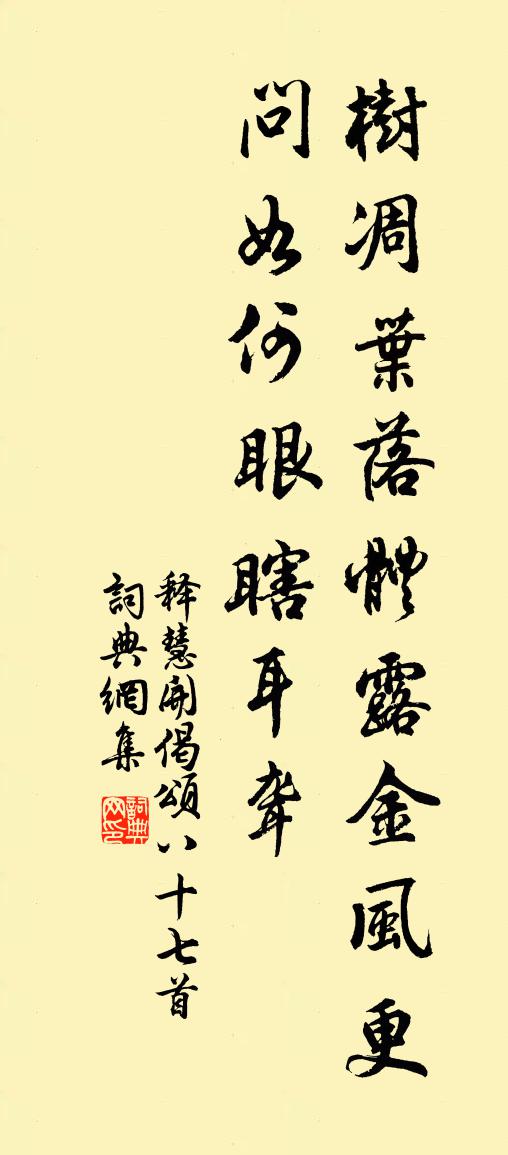 樹凋葉落體露金風更
問如何眼瞎耳聾
释慧開偈頌八十七首
詞典網集
詞典网印